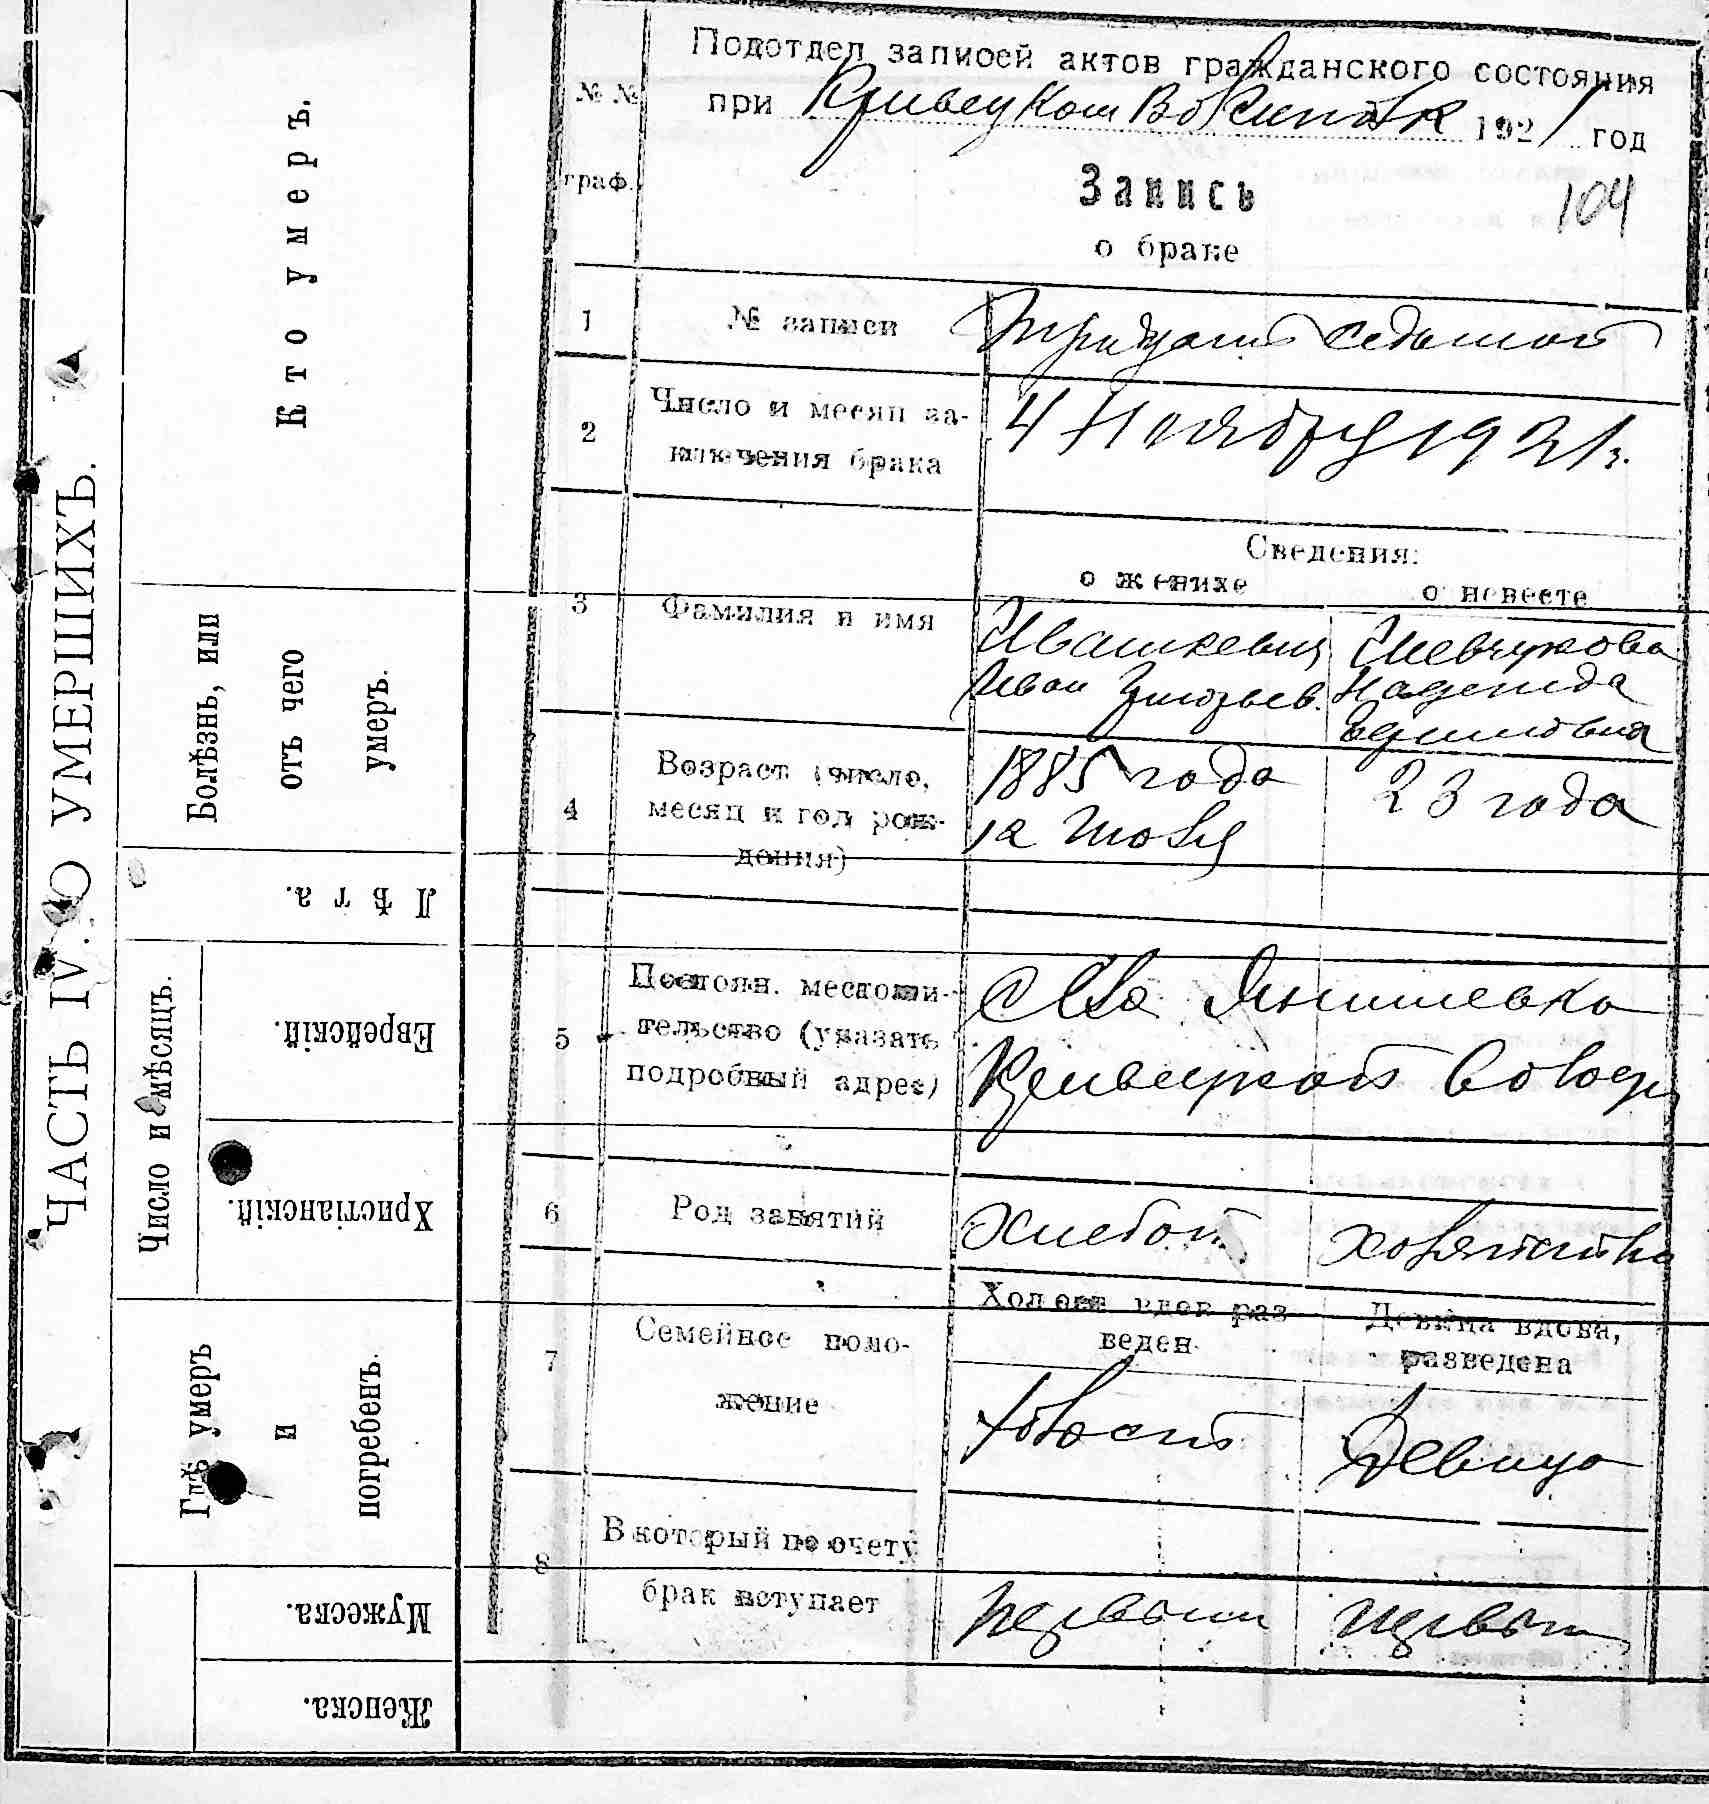 ЧАСТЬ IV. О УМЕРШИХЪ.
Кто умеръ.
Болѣзнь, или
отъ чего
умеръ.
Лѣта.
Число и мѣсяцъ.
Еврейскій.
Христіанскій.
Гдѣ умеръ
и
погребенъ.
Мужеска.
Женска.
№ №
граф.
Подотдел записей актов гражданского состояния
при 1921 год
Запись
104
о браке
1 № записи Тридцать седьмой
2 Число и месяц за-
ключения брака
4 Ноября 1921 г.
Сведения:
о женихе о невесте
3 Фамилия и имя
Ивашкевич Шевчукова
Иван Григорьев. Надежда
4 Возраст (число,
месяц и год рож-
дения)
1885 года 23 года
12
5 Постоян. местожи-
тельство (указать
подробный адрес)
Янишевка
Кривецкой Волости
6 Род занятий Хлебоп. хозяйство
7 Семейное поло-
жение
Холост вдов раз
веден
Девица вдова,
разведена
холост Девица
8 В который по счету
брак вступает
первый первый